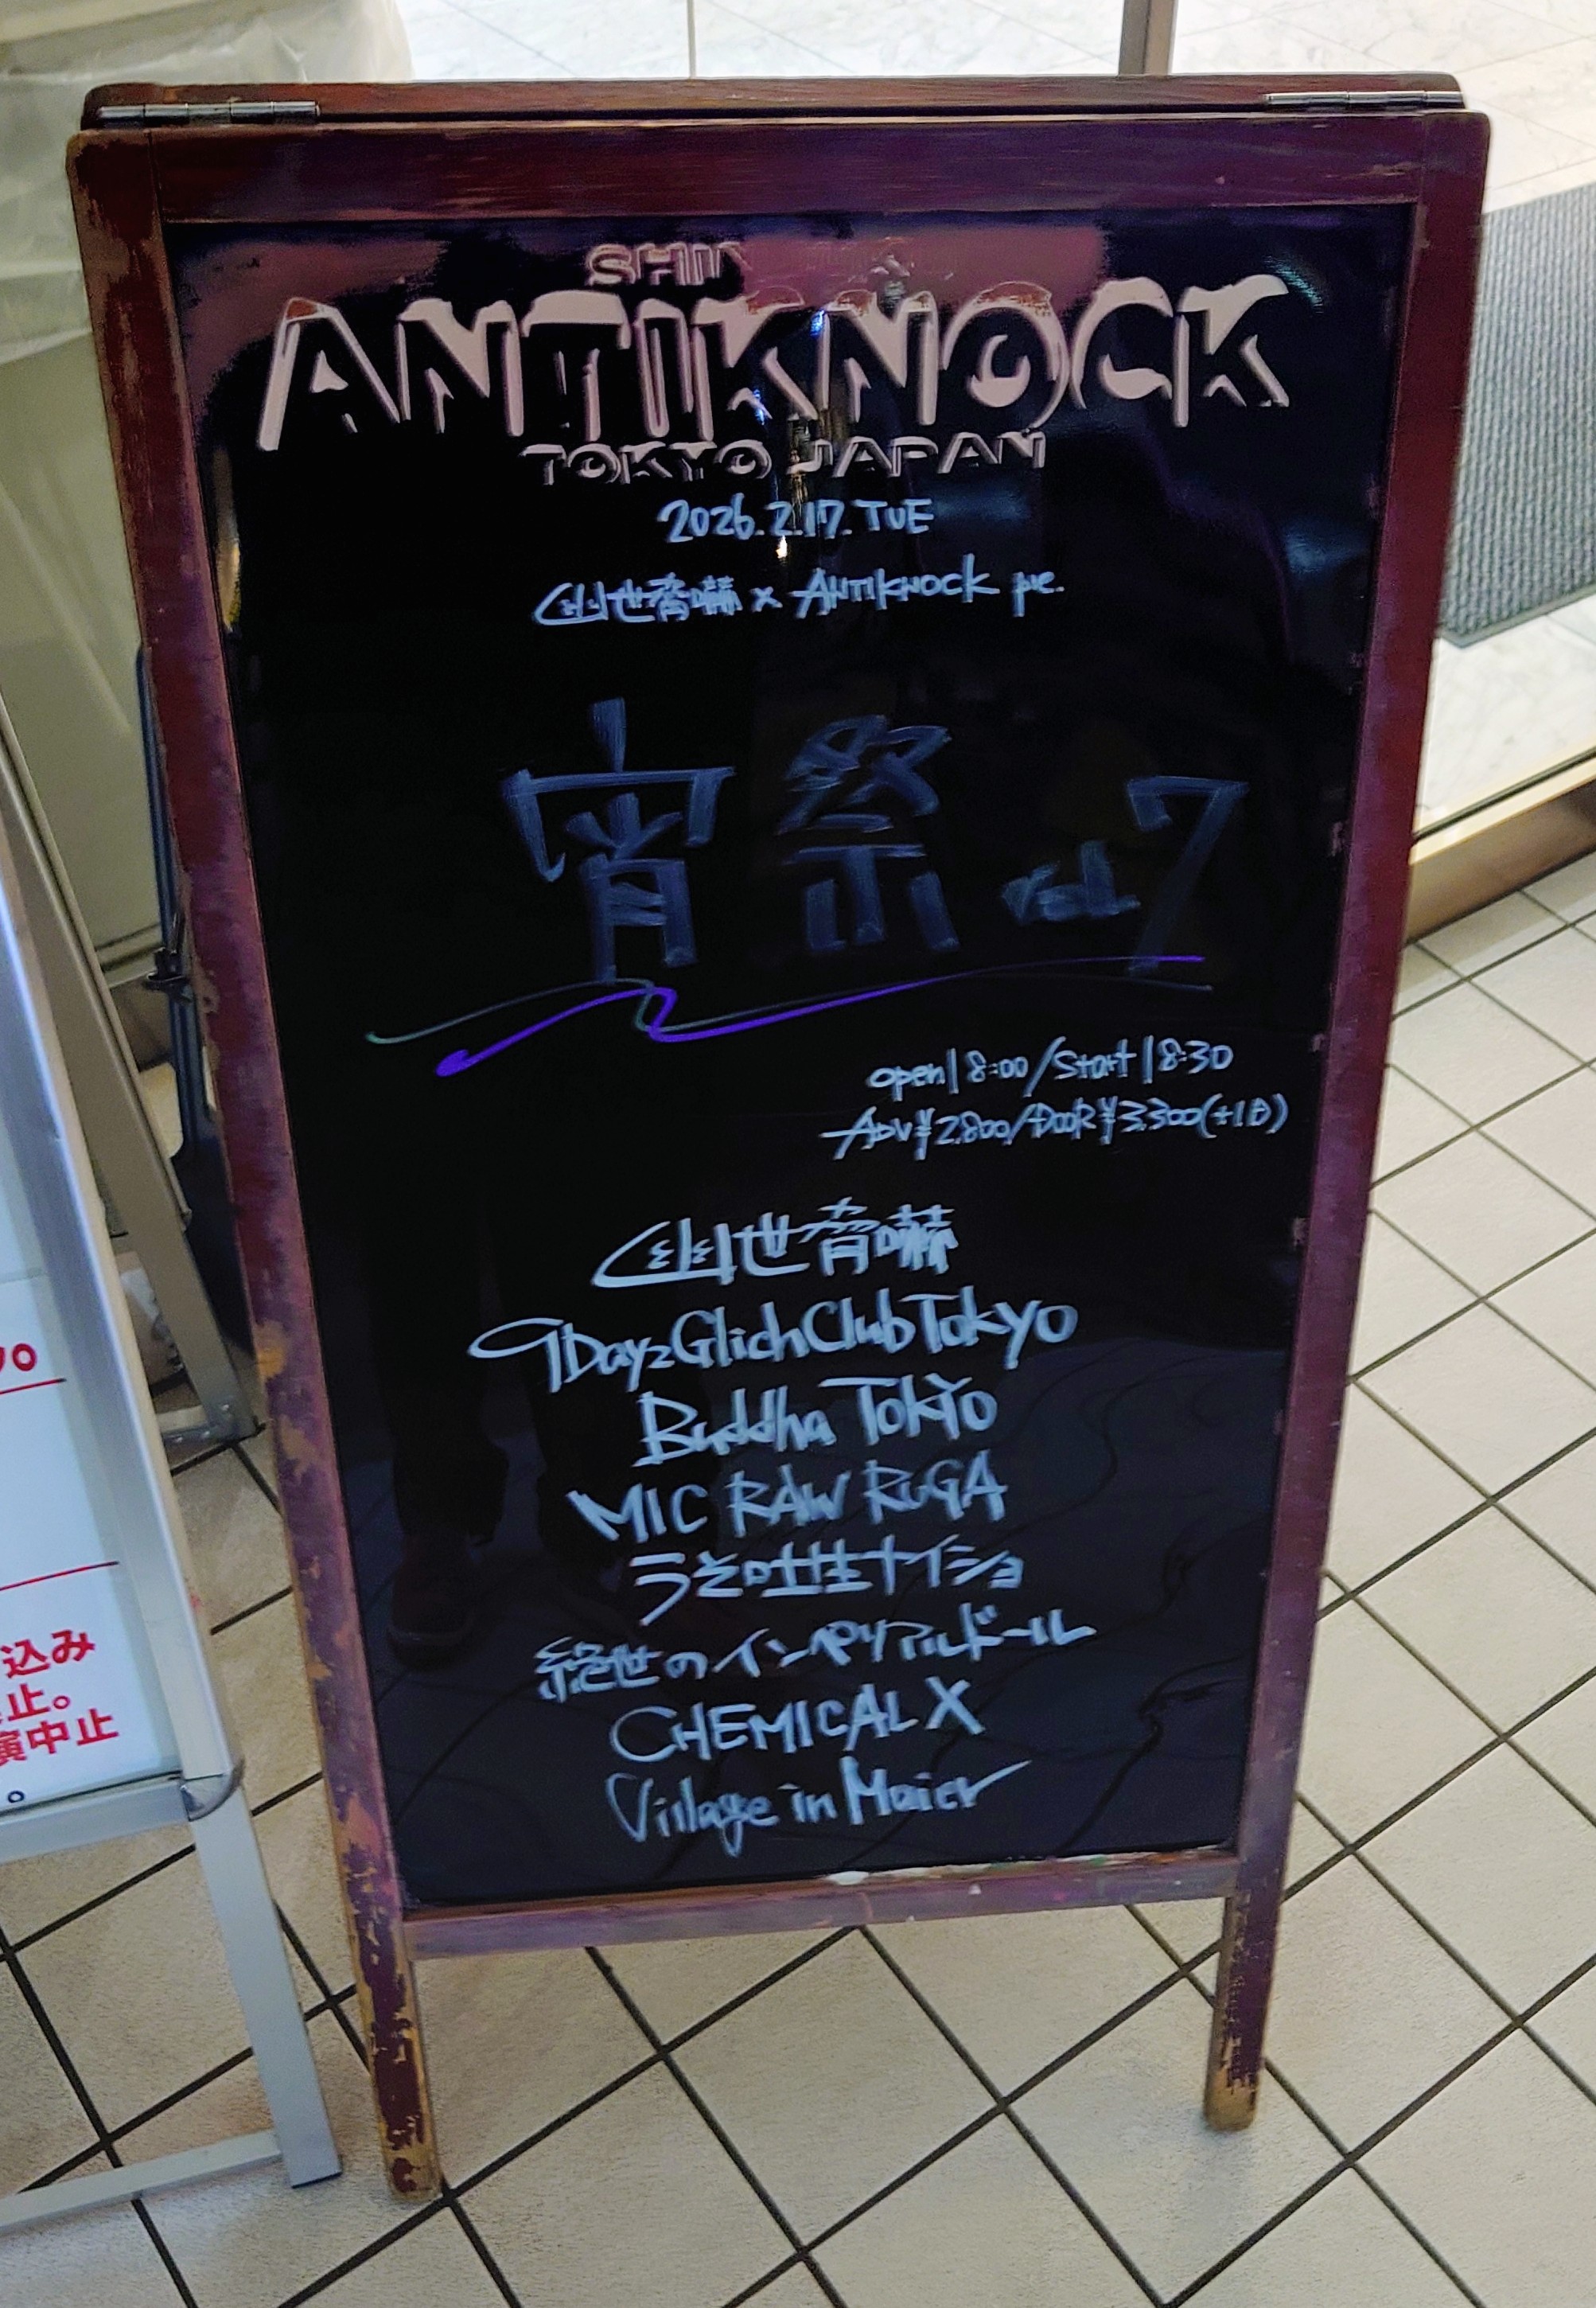 ANTIKNOCK
TOKYO JAPAN
2026.2.17.TUE
x ANTIKNOCK pre.
宵祭 VOL.7
open 18:00/Start 18:30
ADV¥2,800/DOOR¥3,300(+1D)
9DayzGlichClubTokyo
Buddha TOKYO
MIC RAW RUGA
うそ吐生ナイショ
絶世のインペリアルドール
CHEMICAL X
Village in
込み
止。
演中止